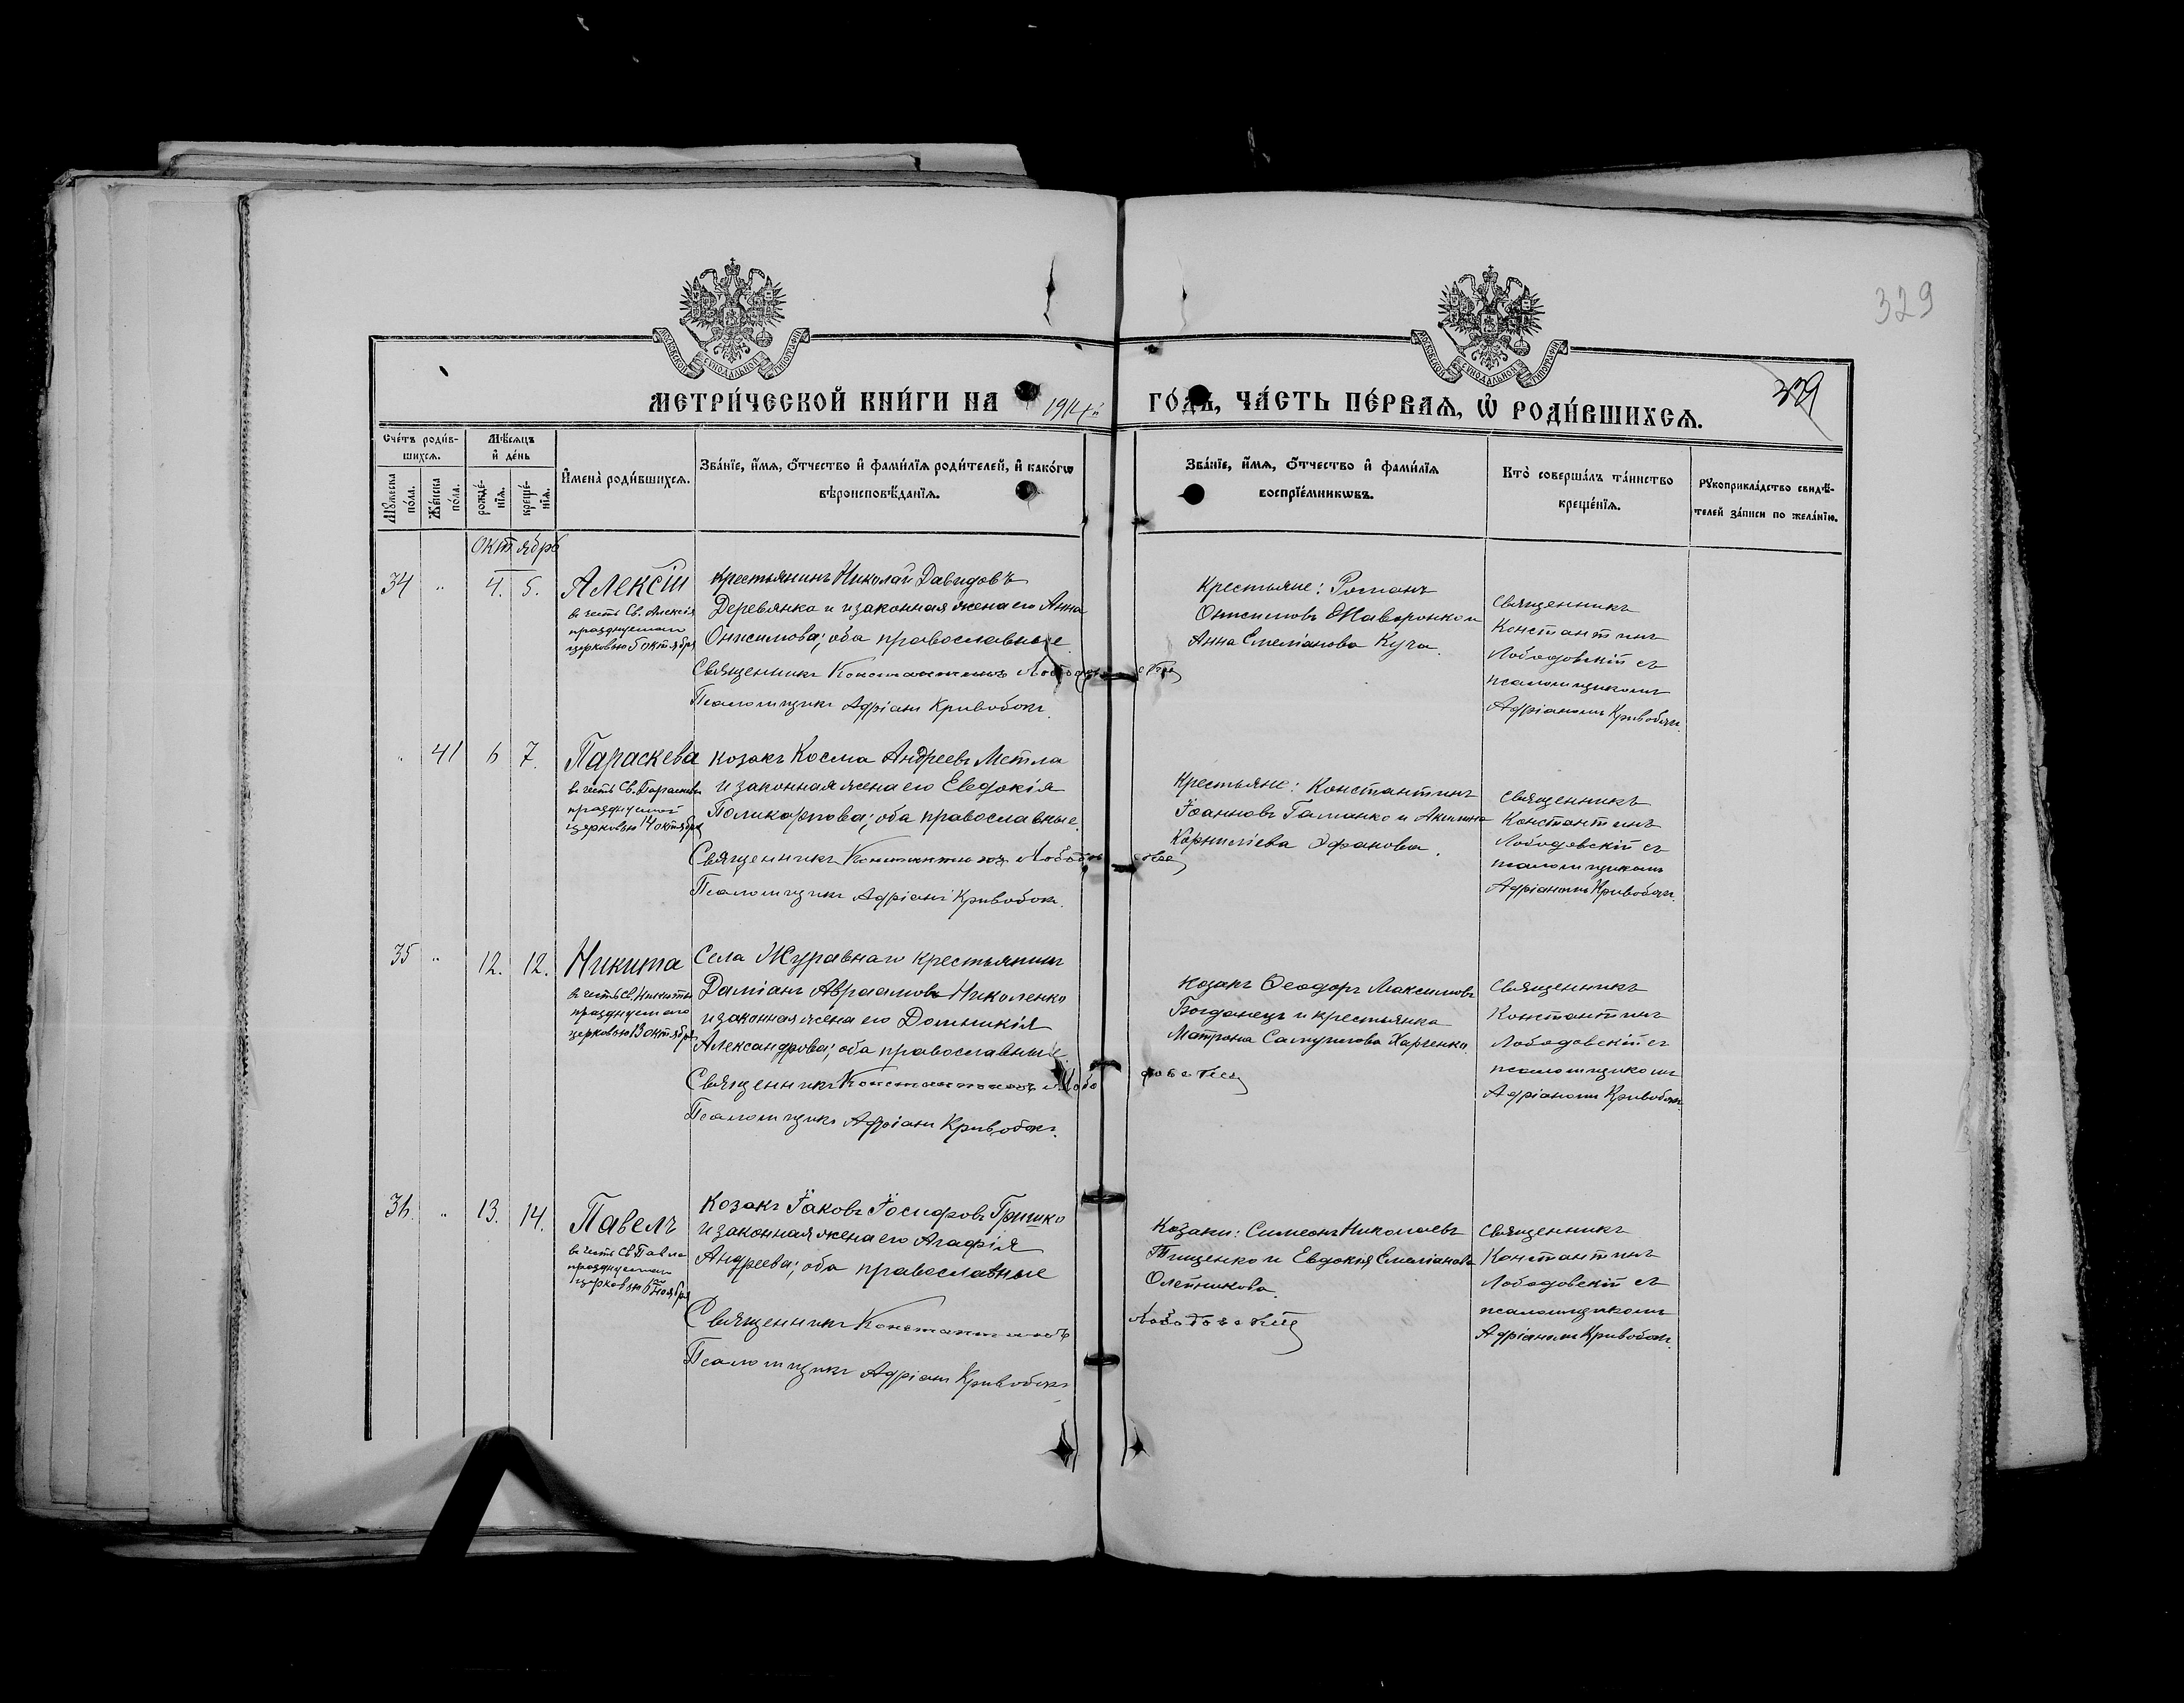 329
МОСКОВСКОЙ СѴНОДАЛЬНОЙ ТИПОГРАФІИ
МОСКОВСКОЙ СѴНОДАЛЬНОЙ ТИПОГРАФІИ
МЕТРИ́ЧЕСКОЙ КНИ́ГИ НА 1914й ГО́ДЪ, ЧА́СТЬ ПЕ́РВАѦ, Ѿ РОДИ́ВШИХСѦ.
Сче́тъ роди́в-
шихсѧ.
Мꙋ́жеска по́ла.
Же́нска по́ла.
Мѣ́сѧцъ
и҆ де́нь
рожде́-
нїѧ.
креще́-
нїѧ.
И҆мена̀ роди́вшихсѧ.
Зва́нїе, и҆́мѧ, ѻ҆́тчество и҆ фами́лїѧ роди́телей, и҆ како́гѡ
вѣроисповѣ́данїѧ.
Зва́нїе, и҆́мѧ, ѻ҆́тчество и҆ фами́лїѧ
воспрїе́мникѡвъ.
Кто̀ соверша́лъ та́инство
креще́нїѧ.
Рꙋкоприкла́дство свидѣ́-
телей за́писи по жела́нїю.
Октябрь
34 " 4. 5. Алексій
въ честь Св. Алексія
празднуемаго
церковью 5 октября
Крестьянинъ Николай Давидовъ
Деревянко и законная жена его Анна
Онисимова; оба православные
Священникъ Константинъ Лободовскій
Псаломщикъ Адріанъ Кривобокъ.
Крестьяне: Романъ
Онисимовъ Жаворонко и
Анна Емеліанова Куча.
Священникъ
Константинъ
Лободовскій съ
псаломщикомъ
Адріаномъ Кривобокъ.
" 41 6 7. Параскева
въ честь Св. Параскевы
празднуемой
церковью 14 октября
Козакъ Косма Андреевъ Метла
и законная жена его Евдокія
Поликарпова; оба православные.
Священникъ Константинъ Лободовскій
Псаломщикъ Адріанъ Кривобокъ.
Крестьяне: Константинъ
Іоанновъ и Акилина
Корниліева
Священникъ
Константинъ
Лободовскій съ
псаломщикомъ
Адріаномъ Кривобокъ.
35 " 12. 12. Никита
въ честь Св. Никиты
празднуемаго
церковью 13 октября
Села Журавнаго крестьянинъ
Даміанъ Авраамовъ Николенко
и законная жена его Домникія
Александрова; оба православные.
Священникъ Константинъ Лободовскій
Псаломщикъ Адріанъ Кривобокъ.
Козакъ Ѳеодоръ Максимовъ
Богданецъ и крестьянка
Матрона Самуилова Харченко.
Священникъ
Константинъ
Лободовскій съ
псаломщикомъ
Адріаномъ Кривобокъ.
36. " 13. 14. Павелъ
въ честь Св. Павла
празднуемаго
церковью 6го ноября
Козакъ Іаковъ Іосифовъ Гришко
и законная жена его Агафія
Андреева; оба православные
Священникъ Константинъ Лободовскій
Псаломщикъ Адріанъ Кривобокъ.
Козаки: Симеонъ Николаевъ
Тищенко и Евдокія Емеліанова
Олейникова.
Священникъ
Константинъ
Лободовскій съ
псаломщикомъ
Адріаномъ Кривобокъ.